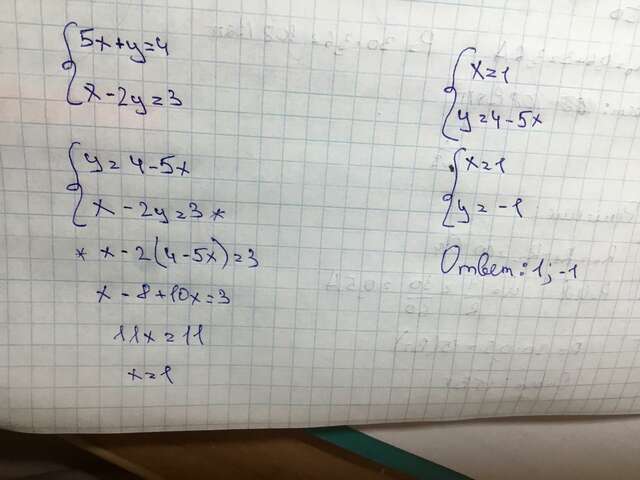 5x+y=4
x-2y=3
y=4-5x
x-2y=3 *
* x-2(4-5x)=3
x-8+10x=3
11x=11
x=1
x=1
y=4-5x
x=1
y=-1
Ответ: 1; -1